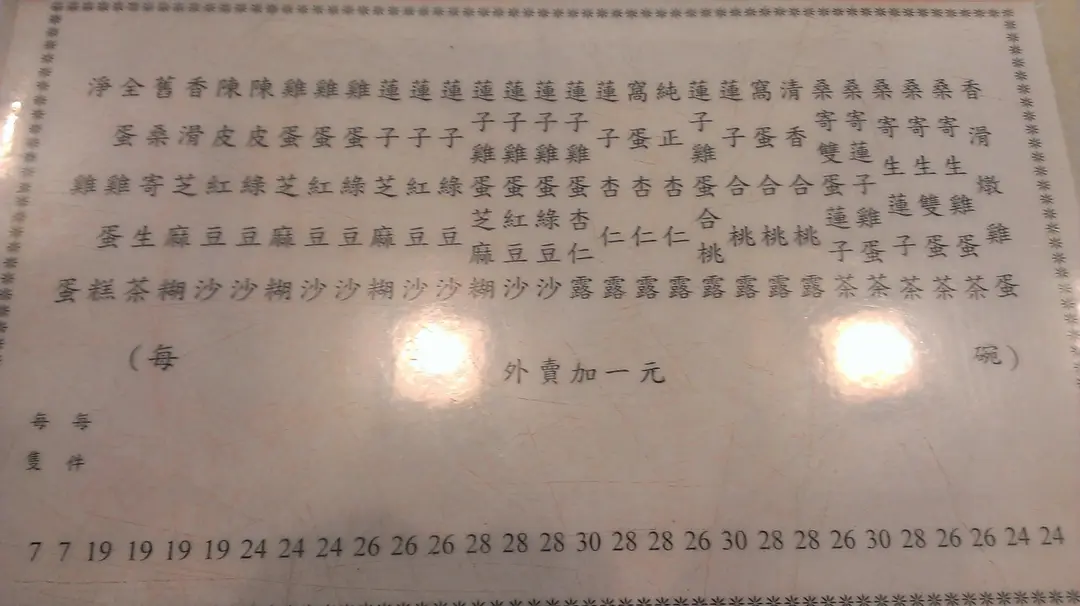 香滑燉雞蛋 24
桑寄生雞蛋茶 24
桑寄生雙蛋茶 26
桑寄生蓮子茶 26
桑寄蓮子雞蛋茶 28
桑寄雙蛋蓮子茶 30
清香合桃露 26
窩蛋合桃露 28
蓮子合桃露 28
蓮子雞蛋合桃露 30
純正杏仁露 26
窩蛋杏仁露 28
蓮子杏仁露 28
蓮子雞蛋杏仁露 30
蓮子雞蛋綠豆沙 28
蓮子雞蛋紅豆沙 28
蓮子雞蛋芝麻糊 28
蓮子綠豆沙 26
蓮子紅豆沙 26
蓮子芝麻糊 26
雞蛋綠豆沙 24
雞蛋紅豆沙 24
雞蛋芝麻糊 24
陳皮綠豆沙 19
陳皮紅豆沙 19
香滑芝麻糊 19
舊桑寄生茶 19
全蛋雞蛋糕 每件 7
淨雞蛋 每隻 7
(每 碗)
外賣加一元